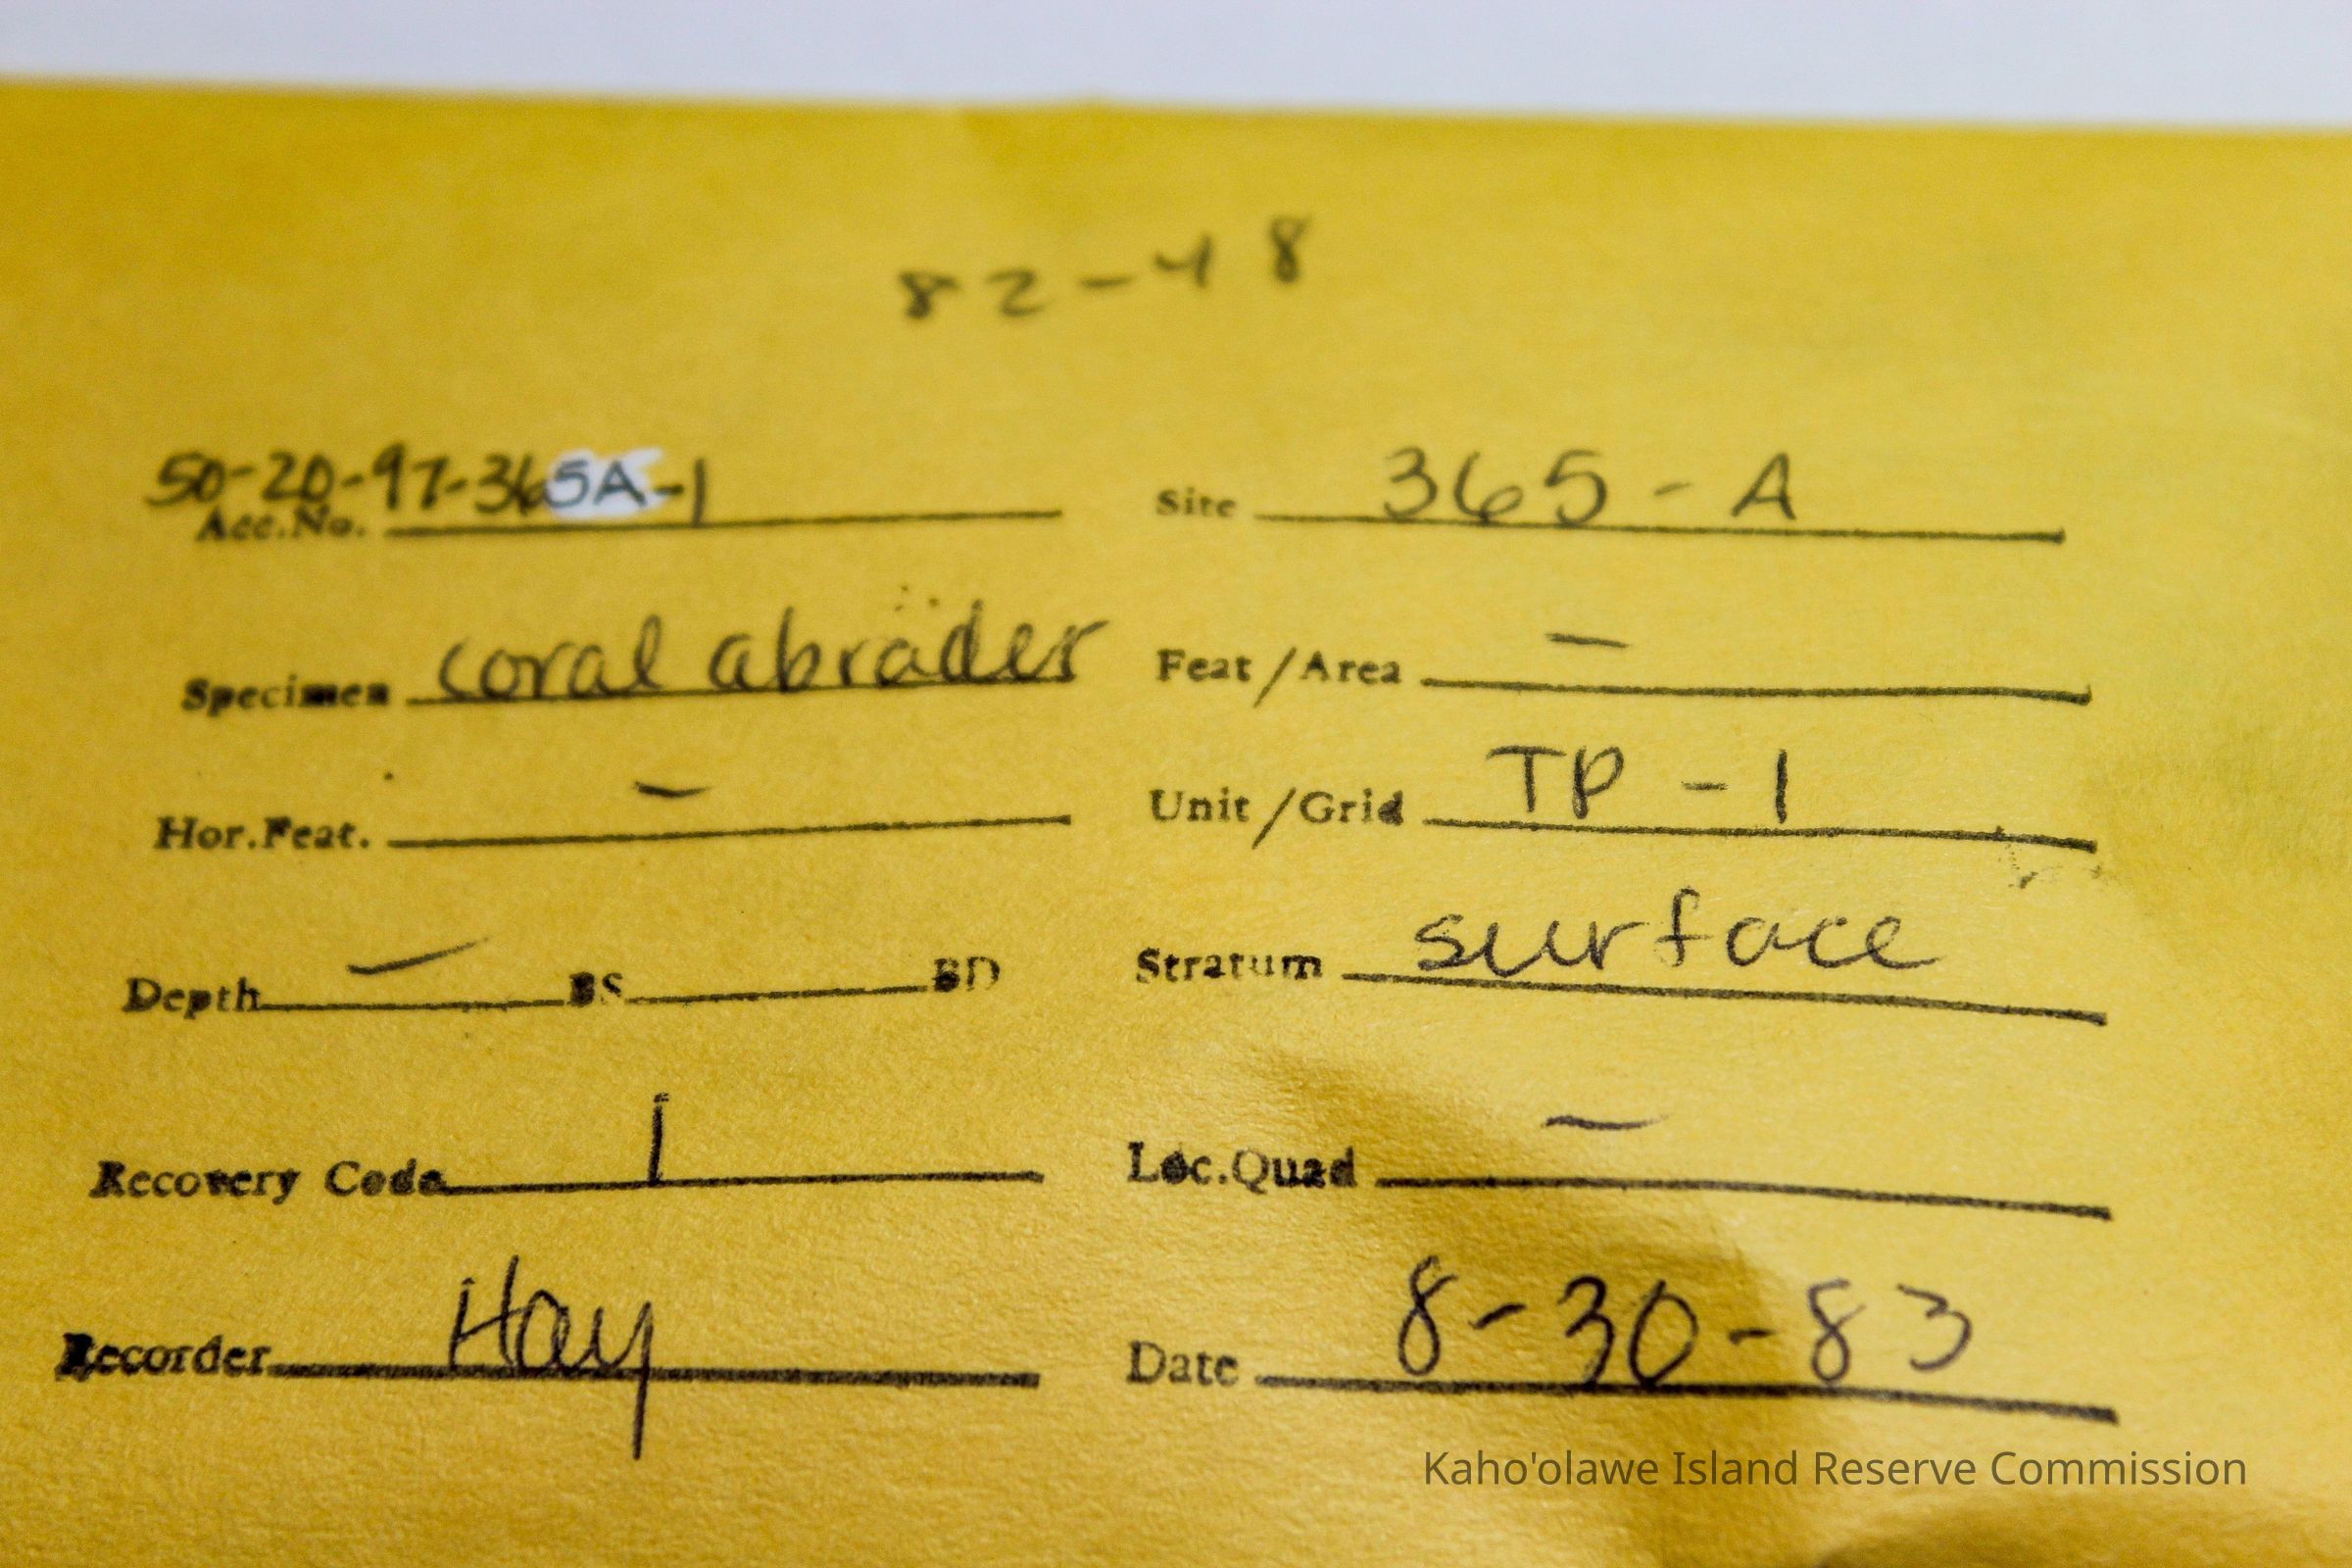 82-48
50-20-97-365A-1
Acc.No. Site 365-A
Specimen coral abrader Feat/Area —
Hor.Feat. — Unit/Grid TP-1
Depth — BS BD Stratum surface
Recovery Code 1 Loc.Quad —
Recorder Hay Date 8-30-83
Kaho'olawe Island Reserve Commission